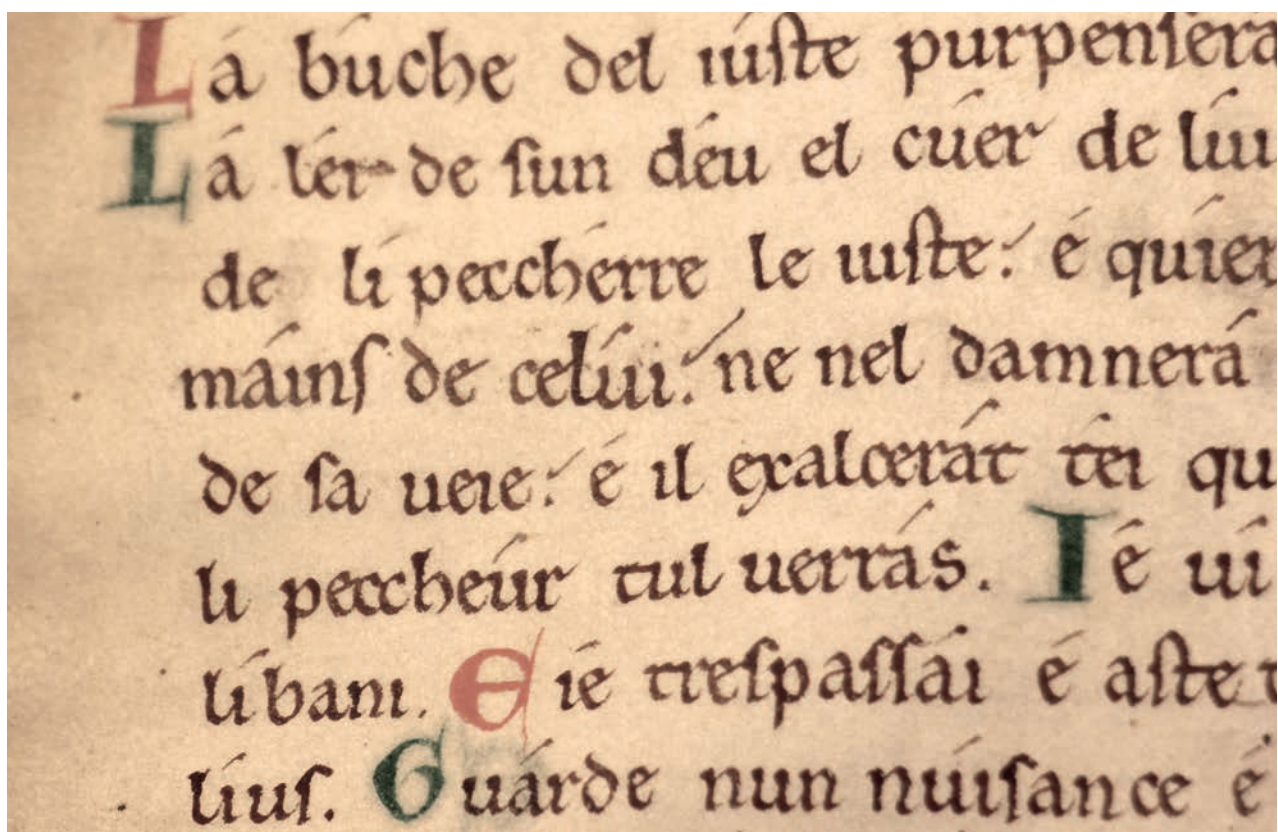 Lá búche del iúste purpenserá
Lá léi de sun déu el cúer de lúi
de li peccherre le iuste: é quier
máins de celúi: ne nel damnerá
de sa ueie: é il exalcerát téi qu
li peccheúr tul uerrás. Ié ui
líbani. E ié trespassái é aste
lius. Guárde nun núisance é